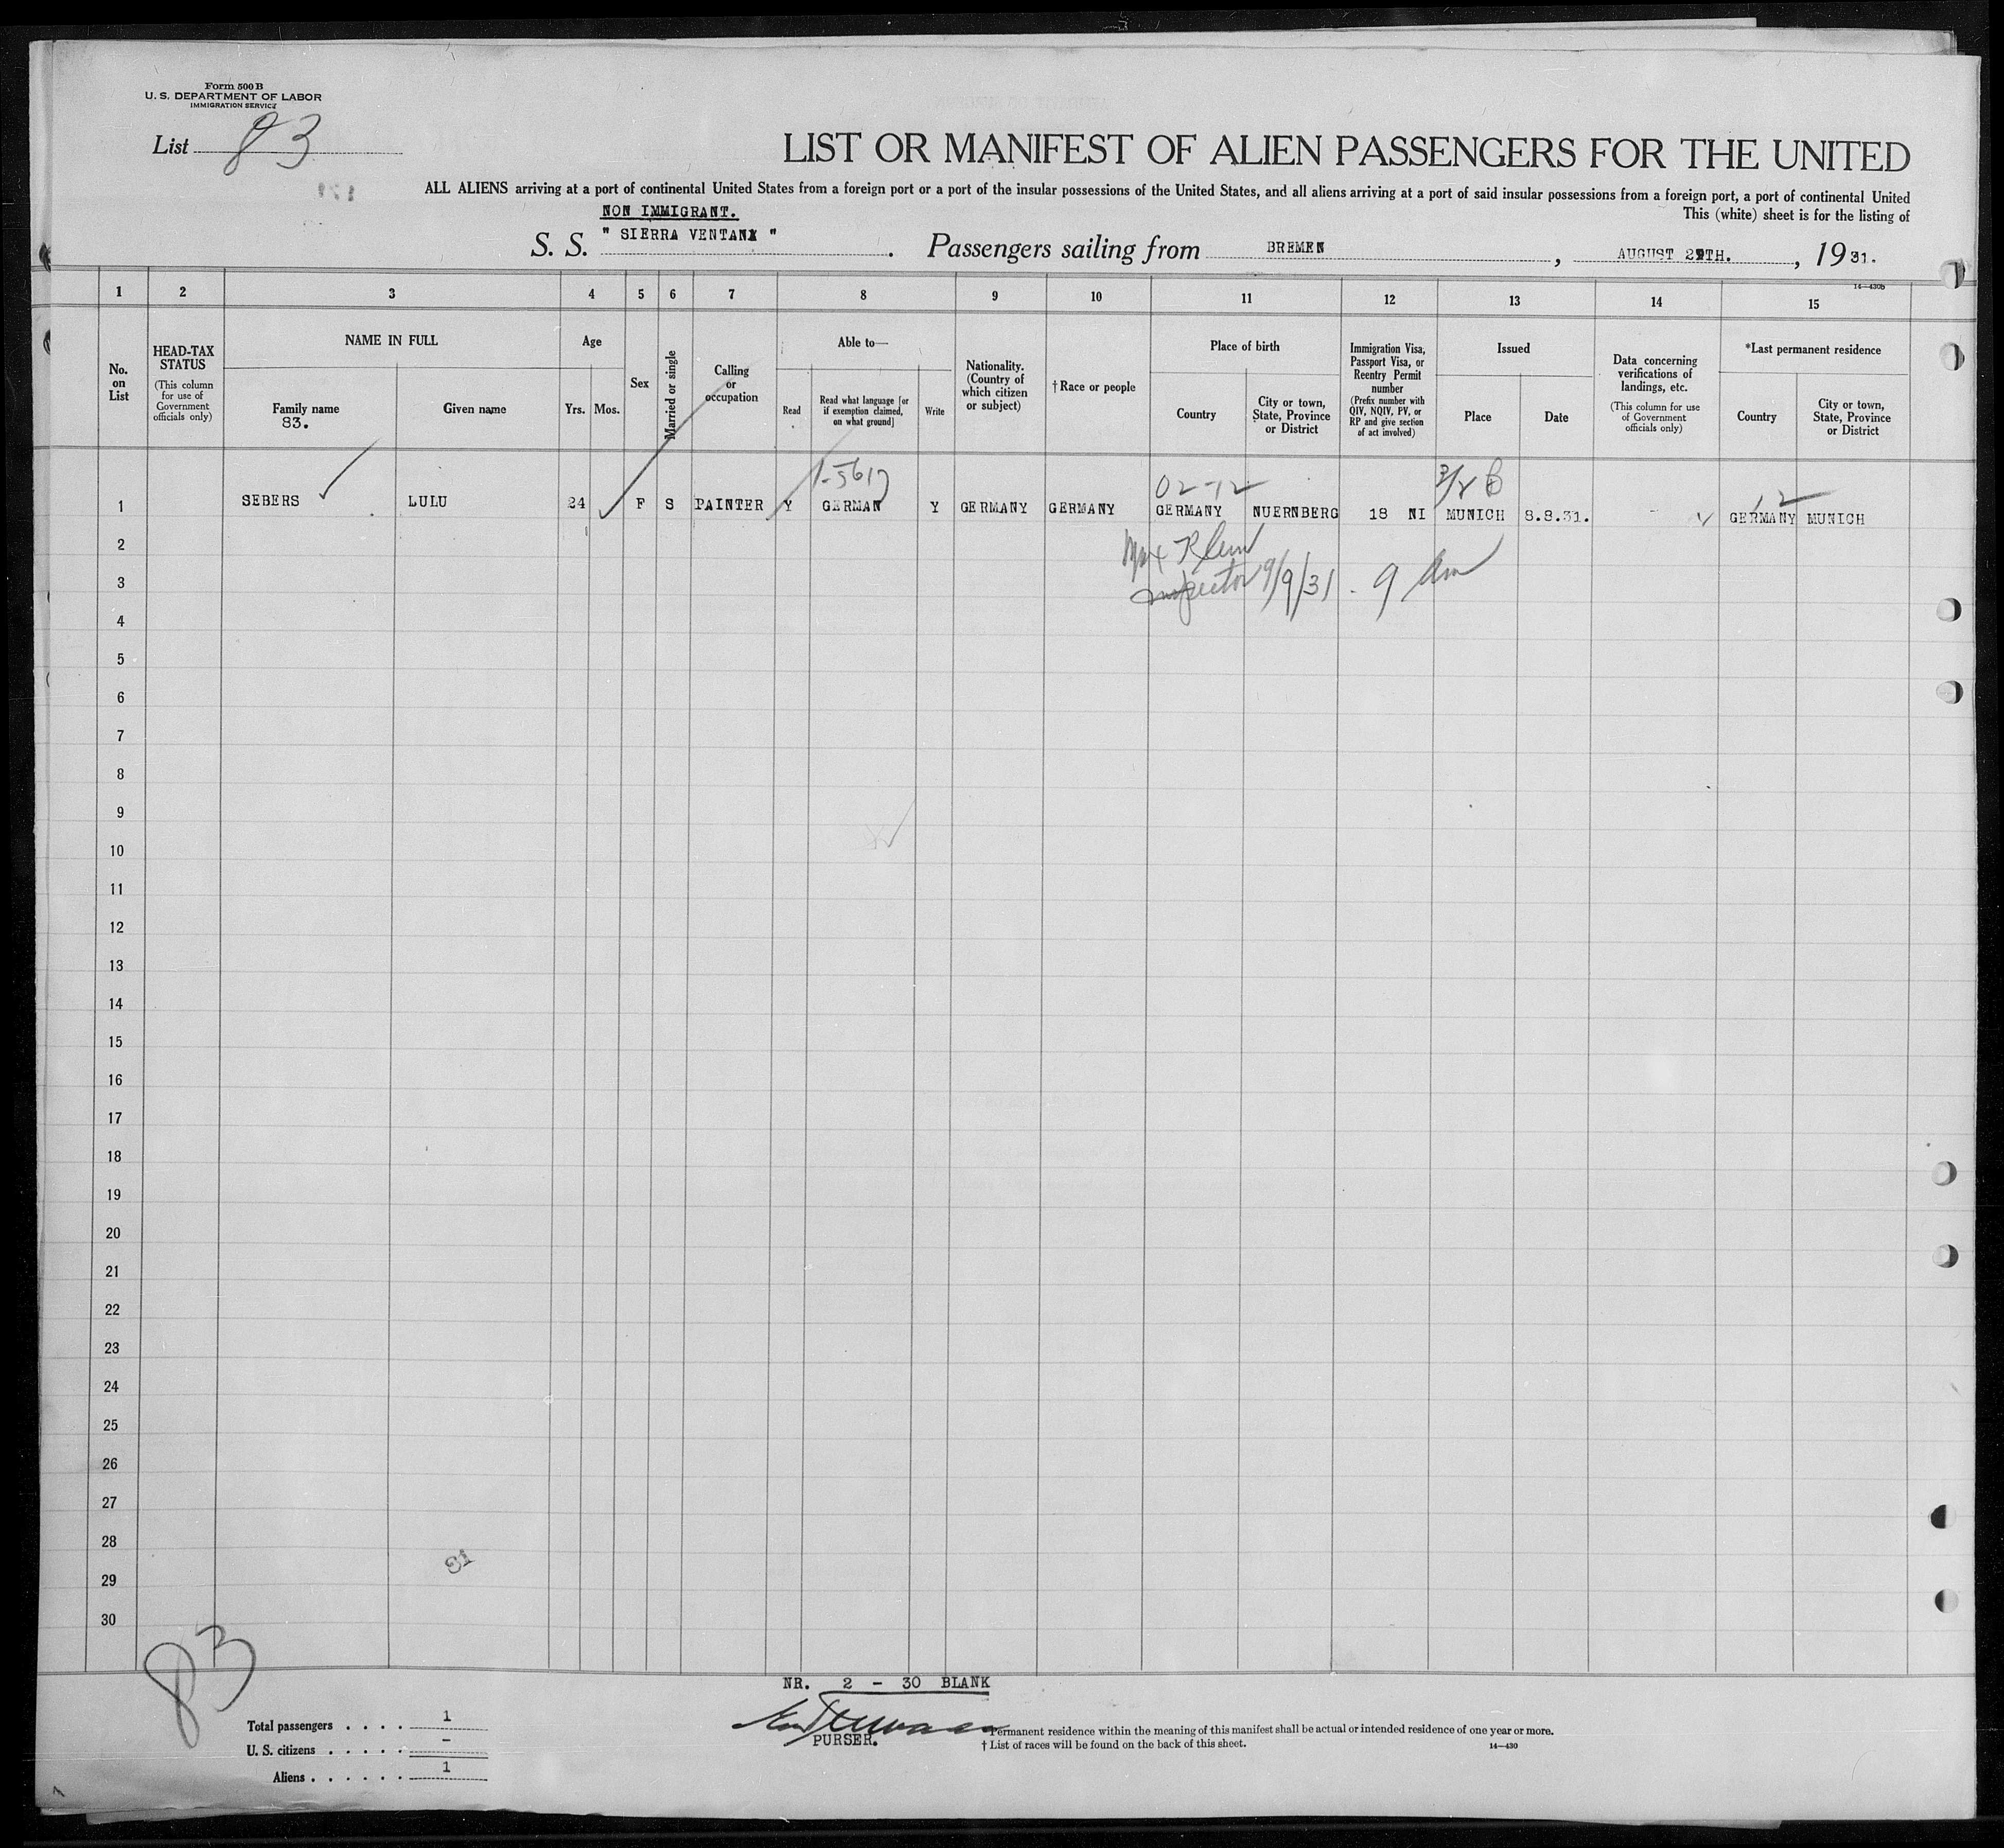 Form 500 B
U. S. DEPARTMENT OF LABOR
IMMIGRATION SERVICE
List 83
LIST OR MANIFEST OF ALIEN PASSENGERS FOR THE UNITED
ALL ALIENS arriving at a port of continental United States from a foreign port or a port of the insular possessions of the United States, and all aliens arriving at a port of said insular possessions from a foreign port, a port of continental United
This (white) sheet is for the listing of
NON IMMIGRANT.
S. S. " SIERRA VENTANA " . Passengers sailing from BREMEN , AUGUST 29TH. , 19 31.
14—430b
1 2 3 4 5 6 7 8 9 10 11 12 13 14 15
No. on List
HEAD-TAX STATUS
(This column for use of Government officials only)
NAME IN FULL
Family name
83.
Given name
Age
Yrs. Mos.
Sex
Married or single
Calling or occupation
Able to—
Read
Read what language [or if exemption claimed, on what ground]
Write
Nationality. (Country of which citizen or subject)
†Race or people
Place of birth
Country
City or town, State, Province or District
Immigration Visa, Passport Visa, or Reentry Permit number
(Prefix number with QIV, NQIV, PV, or RP and give section of act involved)
Issued
Place
Date
Data concerning verifications of landings, etc.
(This column for use of Government officials only)
*Last permanent residence
Country
City or town, State, Province or District
02-12
12
1 SEBERS LULU 24 F S PAINTER Y GERMAN Y GERMANY GERMANY GERMANY NUERNBERG 18 NI MUNICH 8.8.31. GERMANY MUNICH
2
Inspector 9/9/31. 9 Am
3
4
5
6
7
8
9
10
11
12
13
14
15
16
17
18
19
20
21
22
23
24
25
26
27
28
29
30
83
NR. 2 - 30 BLANK
PURSER.
Total passengers . . . . 1
U. S. citizens . . . . . -
Aliens . . . . . . 1
Permanent residence within the meaning of this manifest shall be actual or intended residence of one year or more.
† List of races will be found on the back of this sheet.
14—430